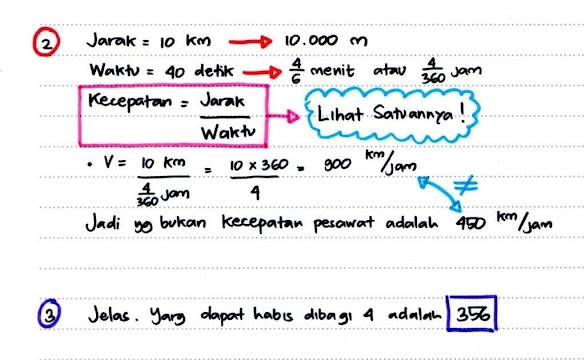 2 Jarak = 10 km → 10.000 m
Waktu = 40 detik → 4/6 menit atau 4/360 jam
Kecepatan = Jarak / Waktu → Lihat Satuannya !
• V = 10 km / 4/360 jam = 10 x 360 / 4 = 900 km/jam
≠
Jadi yg bukan kecepatan pesawat adalah 450 km/jam
3 Jelas. Yang dapat habis dibagi 4 adalah 356